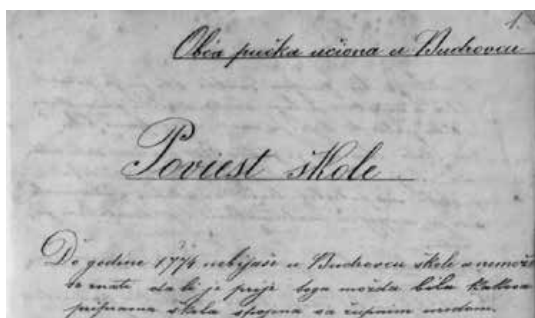 1.
Obća pučka učiona u Budrovcu
Poviest škole
Do godine 1774 nebijaše u Budrovcu škole a nemože
se znati da li je prije toga možda bila kakova
pripravna škola spojena sa župnim uredom.